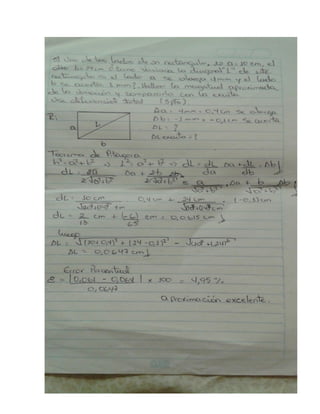 5) Uno de los lados de un rectangulo, es a=10cm, el
otro b=24cm. Cómo variara la diagonal "L" de este
rectangulo si el lado a se alarga 4mm y el lado
b se acorta 1mm?. Hallar la magnitud aproximada
de la variación y compararla con la exacta.
Use diferencial total (5pts).
R:
Δa = 4mm = 0,4cm se alarga
Δb = -1mm = -0,1cm se acorta
ΔL = ?
ΔL exacto = ?
a
L
b
Teorema de Pitagora
h² = a² + b² => L² = a² + b² => dL = dL/da Δa + dL/db Δb
dL = 2a/2√a²+b² Δa + 2b/2√a²+b² = a/√a²+b² Δa + b/√a²+b² Δb
dL = 10cm 0,4cm + 24cm (-0,1)cm
dL = 2/13 cm + (-6)/65 cm = 0,0615cm
luego
ΔL = √(10+0,4)² + (24-0,1)² - √10²+24²
ΔL = 0,0647cm
Error Porcentual
e = |0,061 - 0,064| x 100 = 4,95%
0,0647
aproximación excelente.